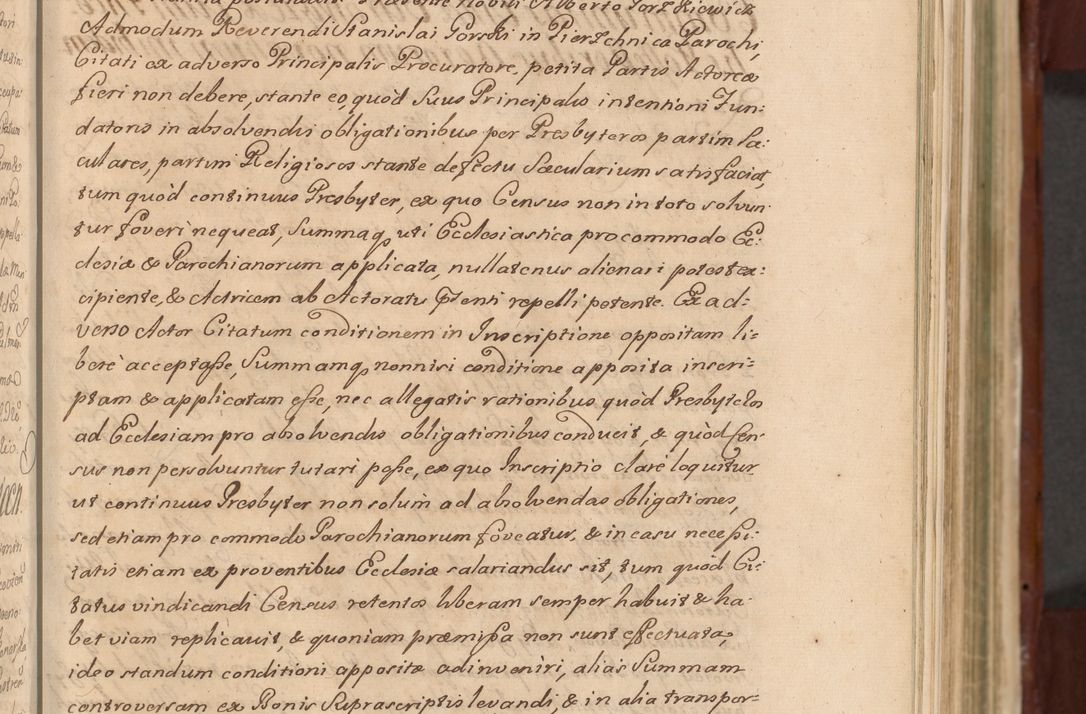 Admodum Reverendi Stanislai Gorski in Pierzchnica Parochi,
Citati ex adverso Principalis Procuratore, petita Partis Actoreæ
fieri non debere, stante eo, quòd Suus Principalis intentioni Fun=
datoris in absolvendis obligationibus per Presbyteros partim Sæ=
culares, partim Religiosos stante defectu Sæcularium satisfaciat,
tum quòd continuus Presbyter, ex quo Census non in toto solvun
tur foveri nequeat, Summaq, uti Ecclesiastica pro commodo Ec=
clesiæ & Parochianorum applicata, nullatenus alienari potest ex=
cipiente, & Actricem ab Actoratu repelli petente. Ex ad=
verso Actor Citatum conditionem in Inscriptione oppositam li=
berè acceptasse, Summamq nonnisi conditione apposita inscri=
ptam & applicatam esse, nec allegatis rationibus quòd Presbyteros
ad Ecclesiam pro absolvendis obligationibus conducit, & quòd Cen=
sus non persolvuntur tutari posse, ex quo Inscriptio clarè loquitur
ut continuus Presbyter non solùm ad absolvendas obligationes,
sed etiam pro commodo Parochianorum foveatur, & in casu necessi=
tatis etiam ex proventibus Ecclesiæ salariandus sit, tum quòd Ci=
tatus vindicandi Census retentos liberam semper habuit & ha=
bet viam replicavit, & quoniam præmissa non sunt effectuata,
ideo standum conditioni appositæ adinveniri, alias Summam
controversam ex Bonis Supra scriptis levandi, & in alia transpor=